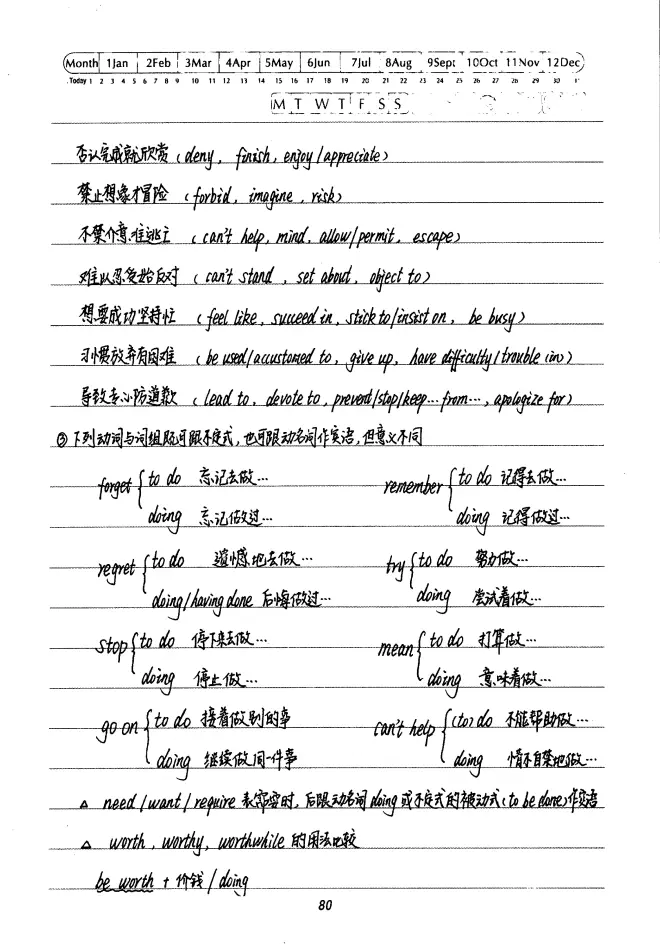 Month 1Jan 2Feb 3Mar 4Apr 5May 6Jun 7Jul 8Aug 9Sept 10Oct 11Nov 12Dec
Today 1 2 3 4 5 6 7 8 9 10 11 12 13 14 15 16 17 18 19 20 21 22 23 24 25 26 27 28 29 30
M T W T F S S
否认完成就欣赏 (deny, finish, enjoy/appreciate)
禁止想象才冒险 (forbid, imagine, risk)
不禁介意准逃亡 (can't help, mind, allow/permit, escape)
难以忍受始反对 (can't stand, set about, object to)
想要成功坚持忙 (feel like, succeed in, stick to/insist on, be busy)
习惯放弃有困难 (be used/accustomed to, give up, have difficulty/trouble (in))
导致专心防道歉 (lead to, devote to, prevent/stop/keep…from…, apologize for)
③下列动词与词组既可跟不定式,也可跟动名词作宾语,但意义不同
forget { to do 忘记去做… remember { to do 记得去做…
doing 忘记做过… doing 记得做过…
regret { to do 遗憾地去做… try { to do 努力做…
doing/having done 后悔做过… doing 尝试着做…
stop { to do 停下来去做… mean { to do 打算做…
doing 停止做… doing 意味着做…
go on { to do 接着做别的事 can't help { (to) do 不能帮助做…
doing 继续做同一件事 doing 情不自禁地做…
△ need/want/require 表需要时,后跟动名词doing或不定式的被动式(to be done)作宾语
△ worth, worthy, worthwhile 的用法比较
be worth + 价钱/doing
80